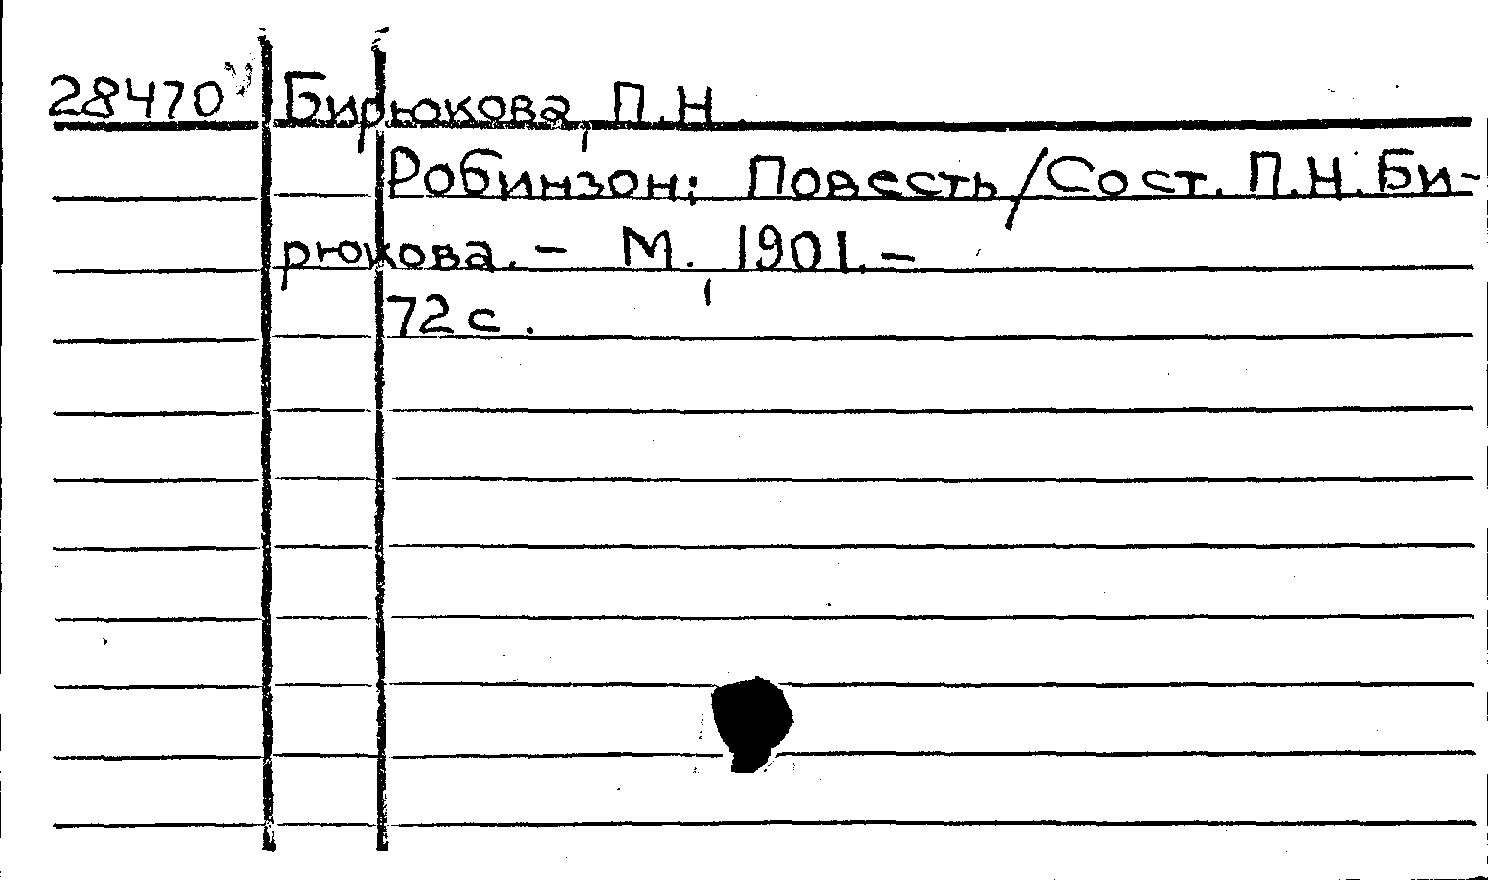 28470 Бирюкова, П.Н.
Робинзон: Повесть/Сост. П.Н.Би-
рюкова. – М., 1901. –
72 с.